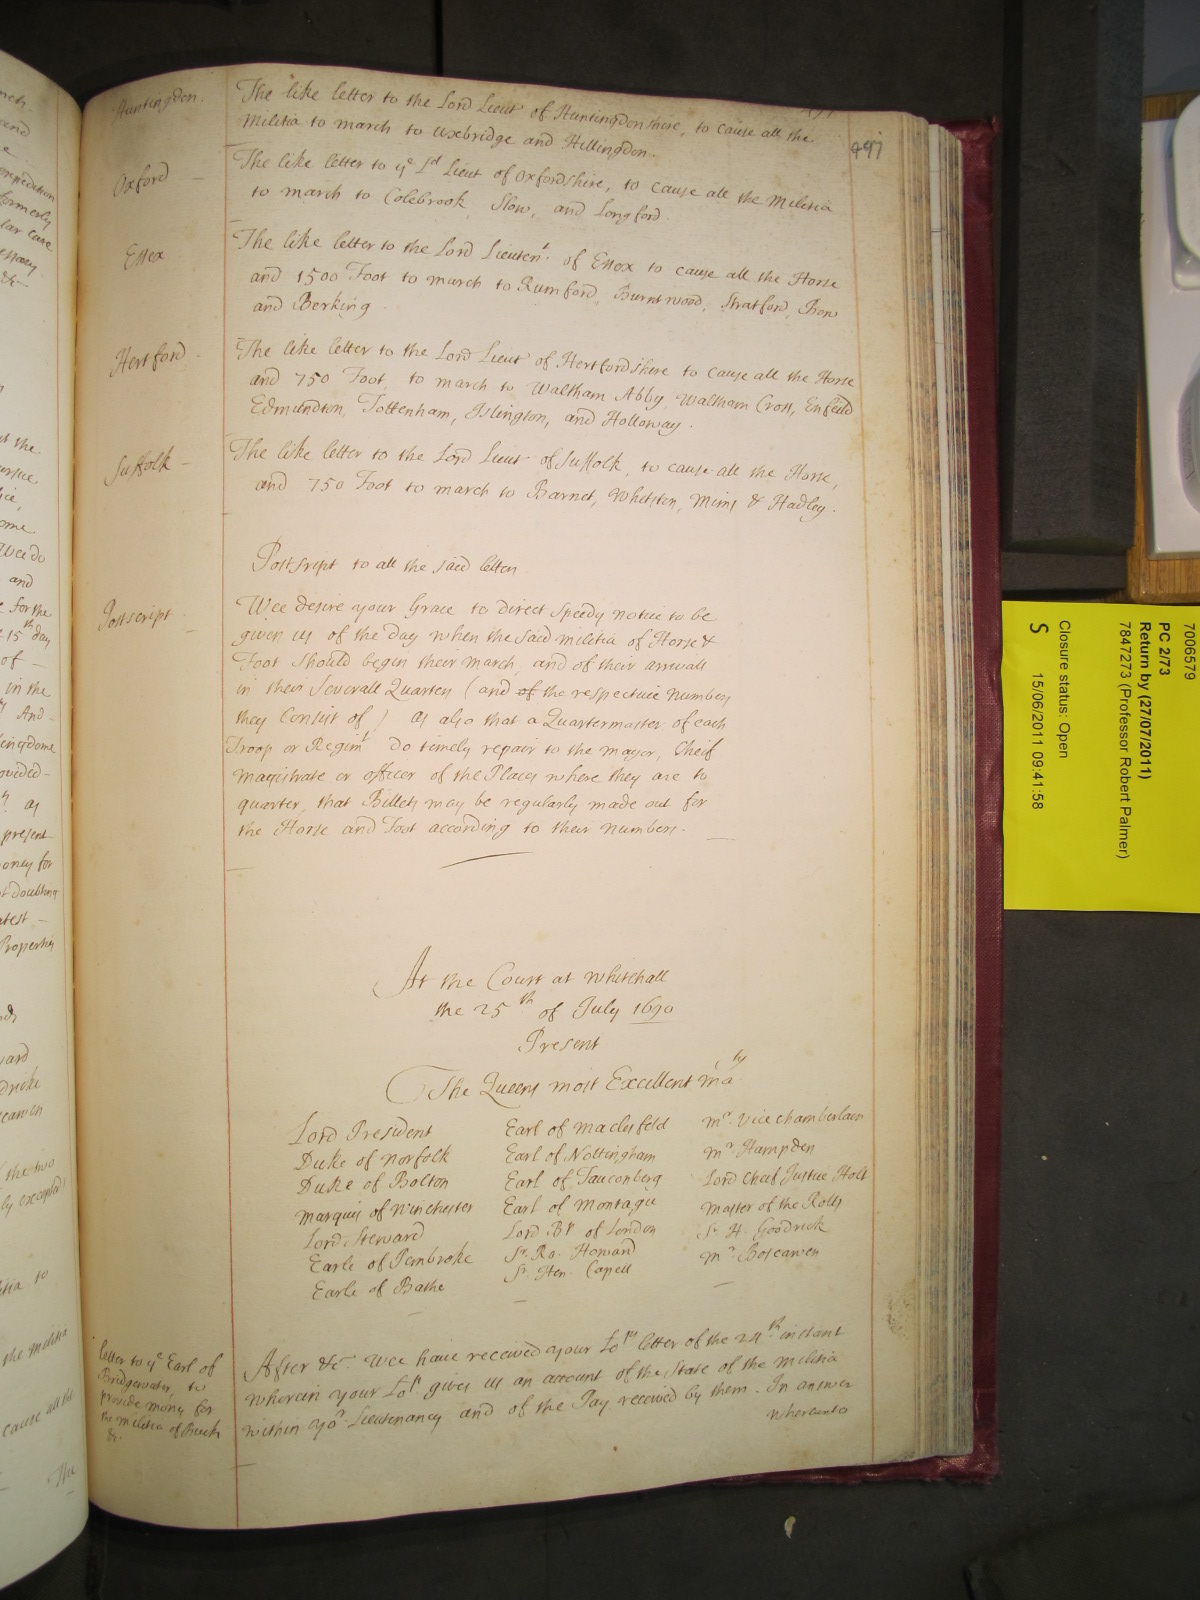 Huntingdon.
The like letter to the Lord Lieut of Huntingdonshire, to cause all the
Militia to march to Uxbridge and Hillingdon.
497
Oxford —
The like letter to ye Ld Lieut of Oxfordshire, to cause all the Militia
to march to Colebrook, Slow, and Longford.
Essex
The like letter to the Lord Lieutent. of Essex to cause all the Horse
and 1500 Foot to march to Rumford, Burntwood, Stratford, Bow
and Berking.
Hertford -
The like letter to the Lord Lieut of Hertfordshire to cause all the Horse
and 750 Foot, to march to Waltham Abby, Waltham Cross, Enfeild
Edmundton, Tottenham, Islington, and Holloway.
Suffolk —
The like letter to the Lord Lieut of Suffolk, to cause all the Horse,
and 750 Foot to march to Barnet, Whetston, Mims & Hadley.
Postsript to all the said letters.
Postscript —
Wee desire your Grace to direct speedy notice to be
given us of the day when the said militia of Horse &
Foot should begin their march, and of their arrivall
in their severall Quarters (and of the respective numbers
they consist of) as also that a Quartermaster of each
Troop or Regimt do timely repair to the mayor, Cheif
magistrate or officer of the Places where they are to
quarter, that Billets may be regularly made out for
the Horse and Foot according to their numbers.
At the Court at Whitehall
the 25th of July 1690
Present
The Queens most Excellent Maty
Lord President
Duke of Norfolk
Duke of Bolton
Marquis of Winchester
Lord Steward
Earle of Pembroke
Earle of Bathe
Earl of Maclesfeld
Earl of Nottingham
Earl of Fauconberg
Earl of Montagu
Lord Bp of London
Sr. Ro. Howard
Sr. Hen. Capell
Mr. Vice chamberlain
Mr. Hampden
Lord Cheif Justice Holt
Master of the Rolls
Sr. H. Goodrick
Mr. Boscawen
letter to ye Earl of
Bridgewater, to
provide money for
the militia of Bucks
&c.
After &c. Wee have received your Lopps letter of the 24th instant
wherein your Lopp gives us an account of the State of the militia
within yor Lieutenancy and of the Pay received by them. In answer
whereunto
7006579
PC 2/73
Return by (27/07/2011)
7847273 (Professor Robert Palmer)
Closure status: Open
S 15/06/2011 09:41:58